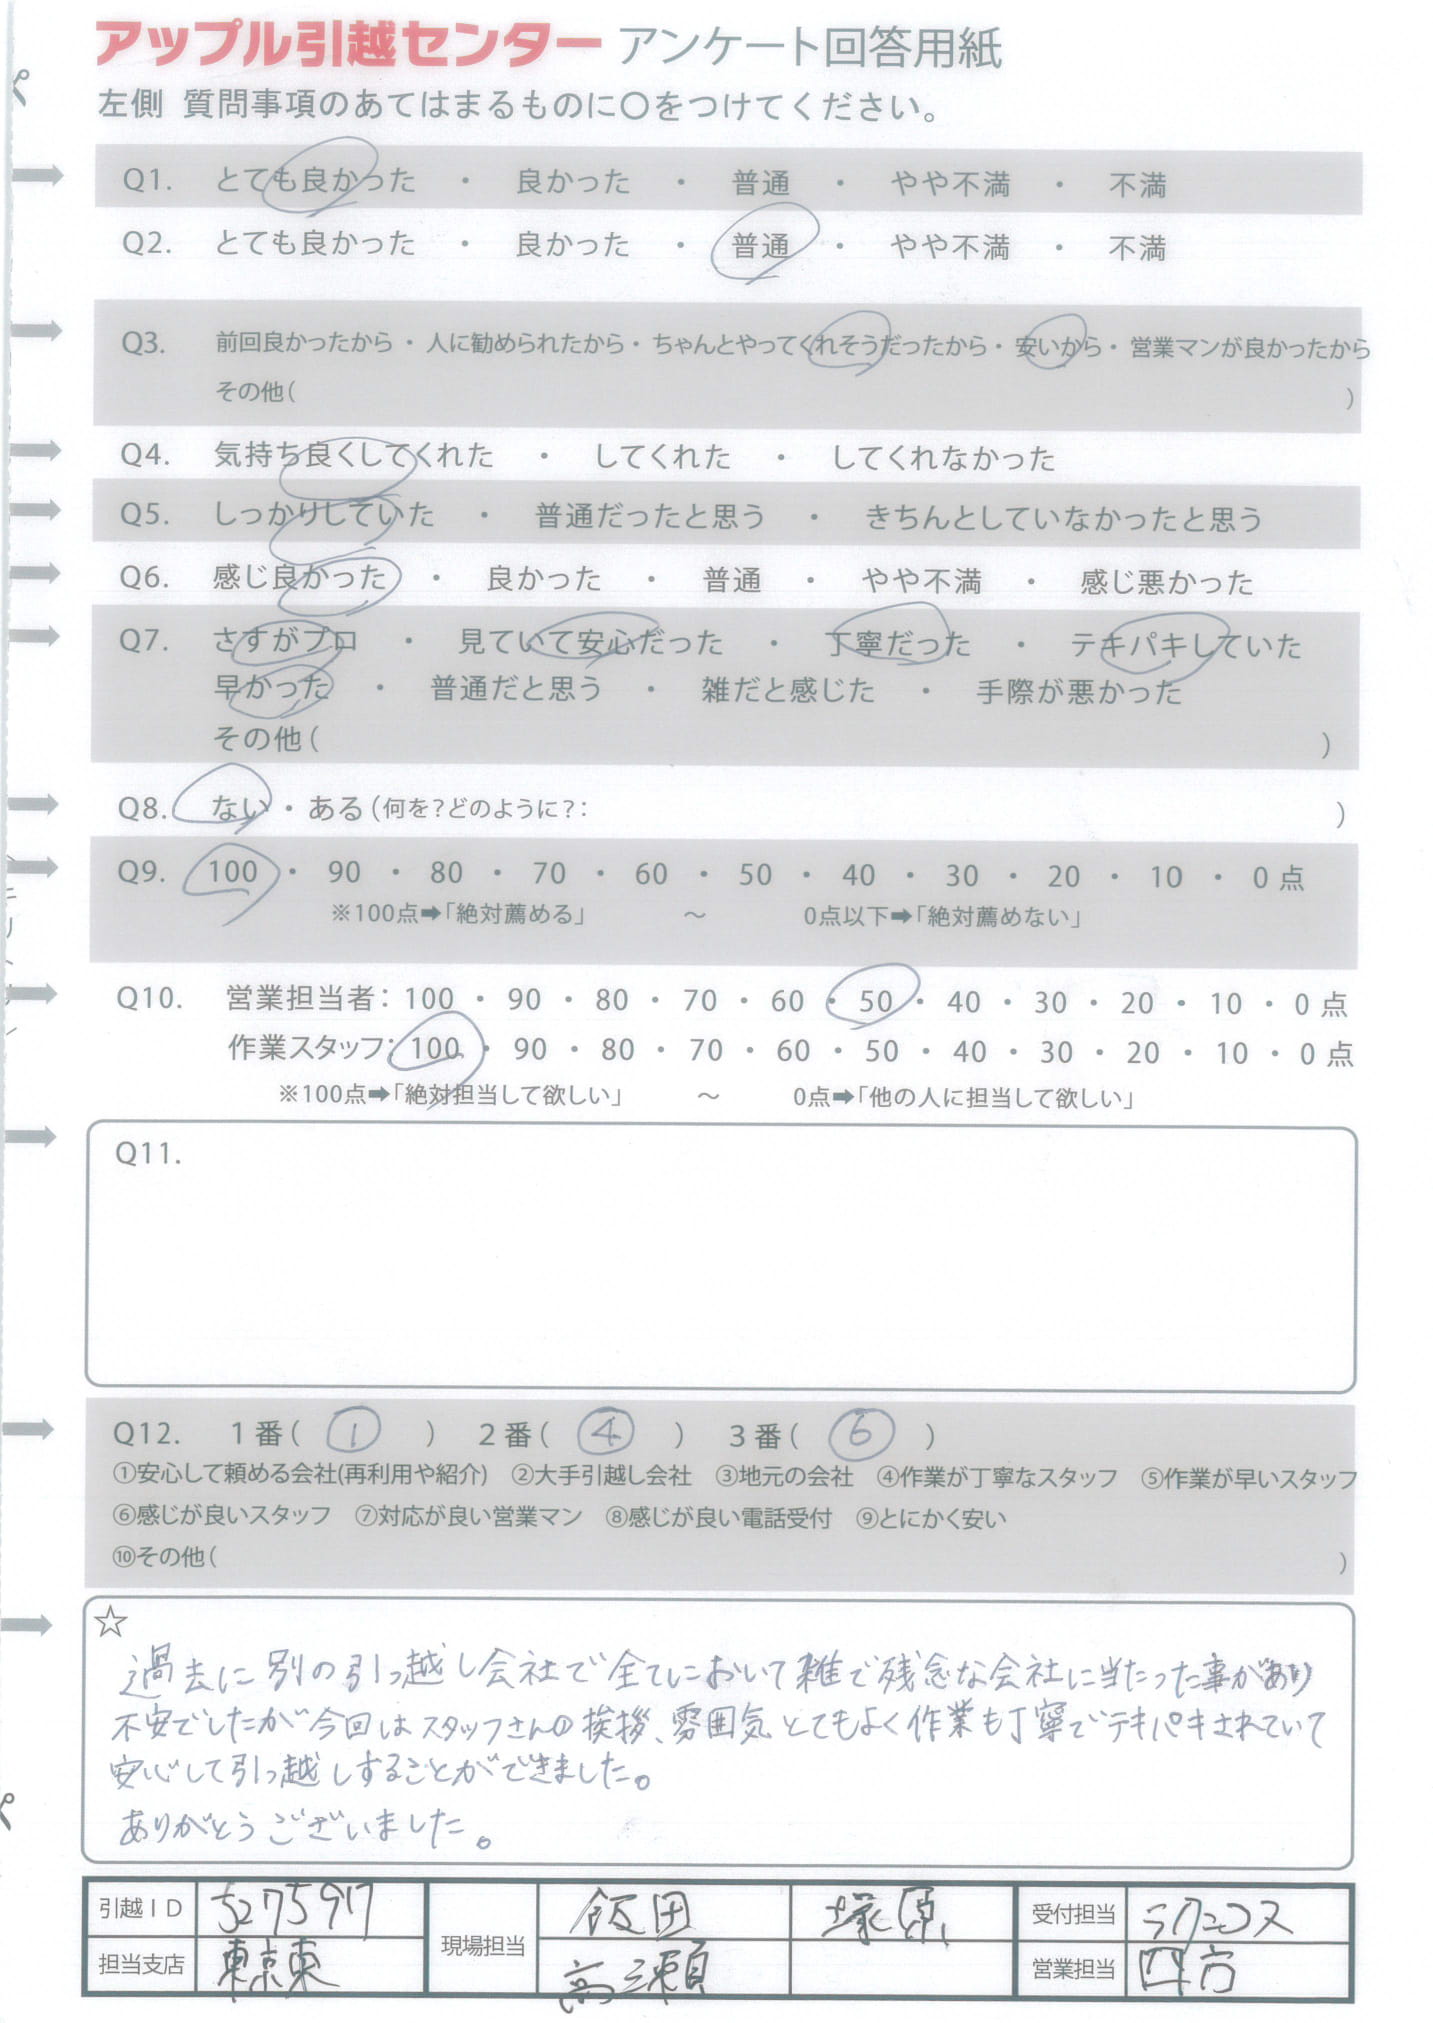 アップル引越センター アンケート回答用紙
左側 質問事項のあてはまるものに○をつけてください。
Q1. とても良かった ・ 良かった ・ 普通 ・ やや不満 ・ 不満
Q2. とても良かった ・ 良かった ・ 普通 ・ やや不満 ・ 不満
Q3. 前回良かったから・人に勧められたから・ちゃんとやってくれそうだったから・安いから・営業マンが良かったから
その他( )
Q4. 気持ち良くしてくれた ・ してくれた ・ してくれなかった
Q5. しっかりしていた ・ 普通だったと思う ・ きちんとしていなかったと思う
Q6. 感じ良かった ・ 良かった ・ 普通 ・ やや不満 ・ 感じ悪かった
Q7. さすがプロ ・ 見ていて安心だった ・ 丁寧だった ・ テキパキしていた
早かった ・ 普通だと思う ・ 雑だと感じた ・ 手際が悪かった
その他( )
Q8. ない・ある(何を?どのように?: )
Q9. 100 ・ 90 ・ 80 ・ 70 ・ 60 ・ 50 ・ 40 ・ 30 ・ 20 ・ 10 ・ 0点
※100点➡「絶対薦める」 ～ 0点以下➡「絶対薦めない」
Q10. 営業担当者:100 ・ 90 ・ 80 ・ 70 ・ 60 ・ 50 ・ 40 ・ 30 ・ 20 ・ 10 ・ 0点
作業スタッフ:100 ・ 90 ・ 80 ・ 70 ・ 60 ・ 50 ・ 40 ・ 30 ・ 20 ・ 10 ・ 0点
※100点➡「絶対担当して欲しい」 ～ 0点➡「他の人に担当して欲しい」
Q11.
Q12. 1番( ① ) 2番( ④ ) 3番( ⑥ )
①安心して頼める会社(再利用や紹介) ②大手引越し会社 ③地元の会社 ④作業が丁寧なスタッフ ⑤作業が早いスタッフ
⑥感じが良いスタッフ ⑦対応が良い営業マン ⑧感じが良い電話受付 ⑨とにかく安い
⑩その他( )
☆
過去に別の引っ越し会社で全てにおいて雑で残念な会社に当たった事があり
不安でしたが今回はスタッフさんの挨拶、雰囲気とてもよく作業も丁寧でテキパキされていて
安心して引っ越しすることができました。
ありがとうございました。
引越ID 527597 現場担当 飯田 塚原 受付担当
担当支店 東京東 高瀬 営業担当 四方